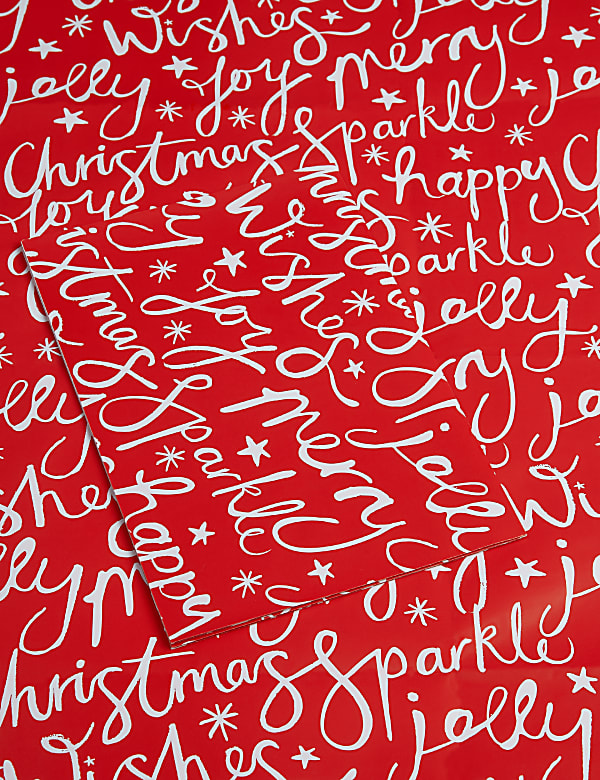 Wishes
jolly Joy merry jolly
Christmas Sparkle
Joy happy
sparkle
jolly
Wishes
Christmas
Joy
merry
jolly
Christmas Sparkle
happy
jolly
Wishes
jolly
Christmas Sparkle
jolly
Wishes